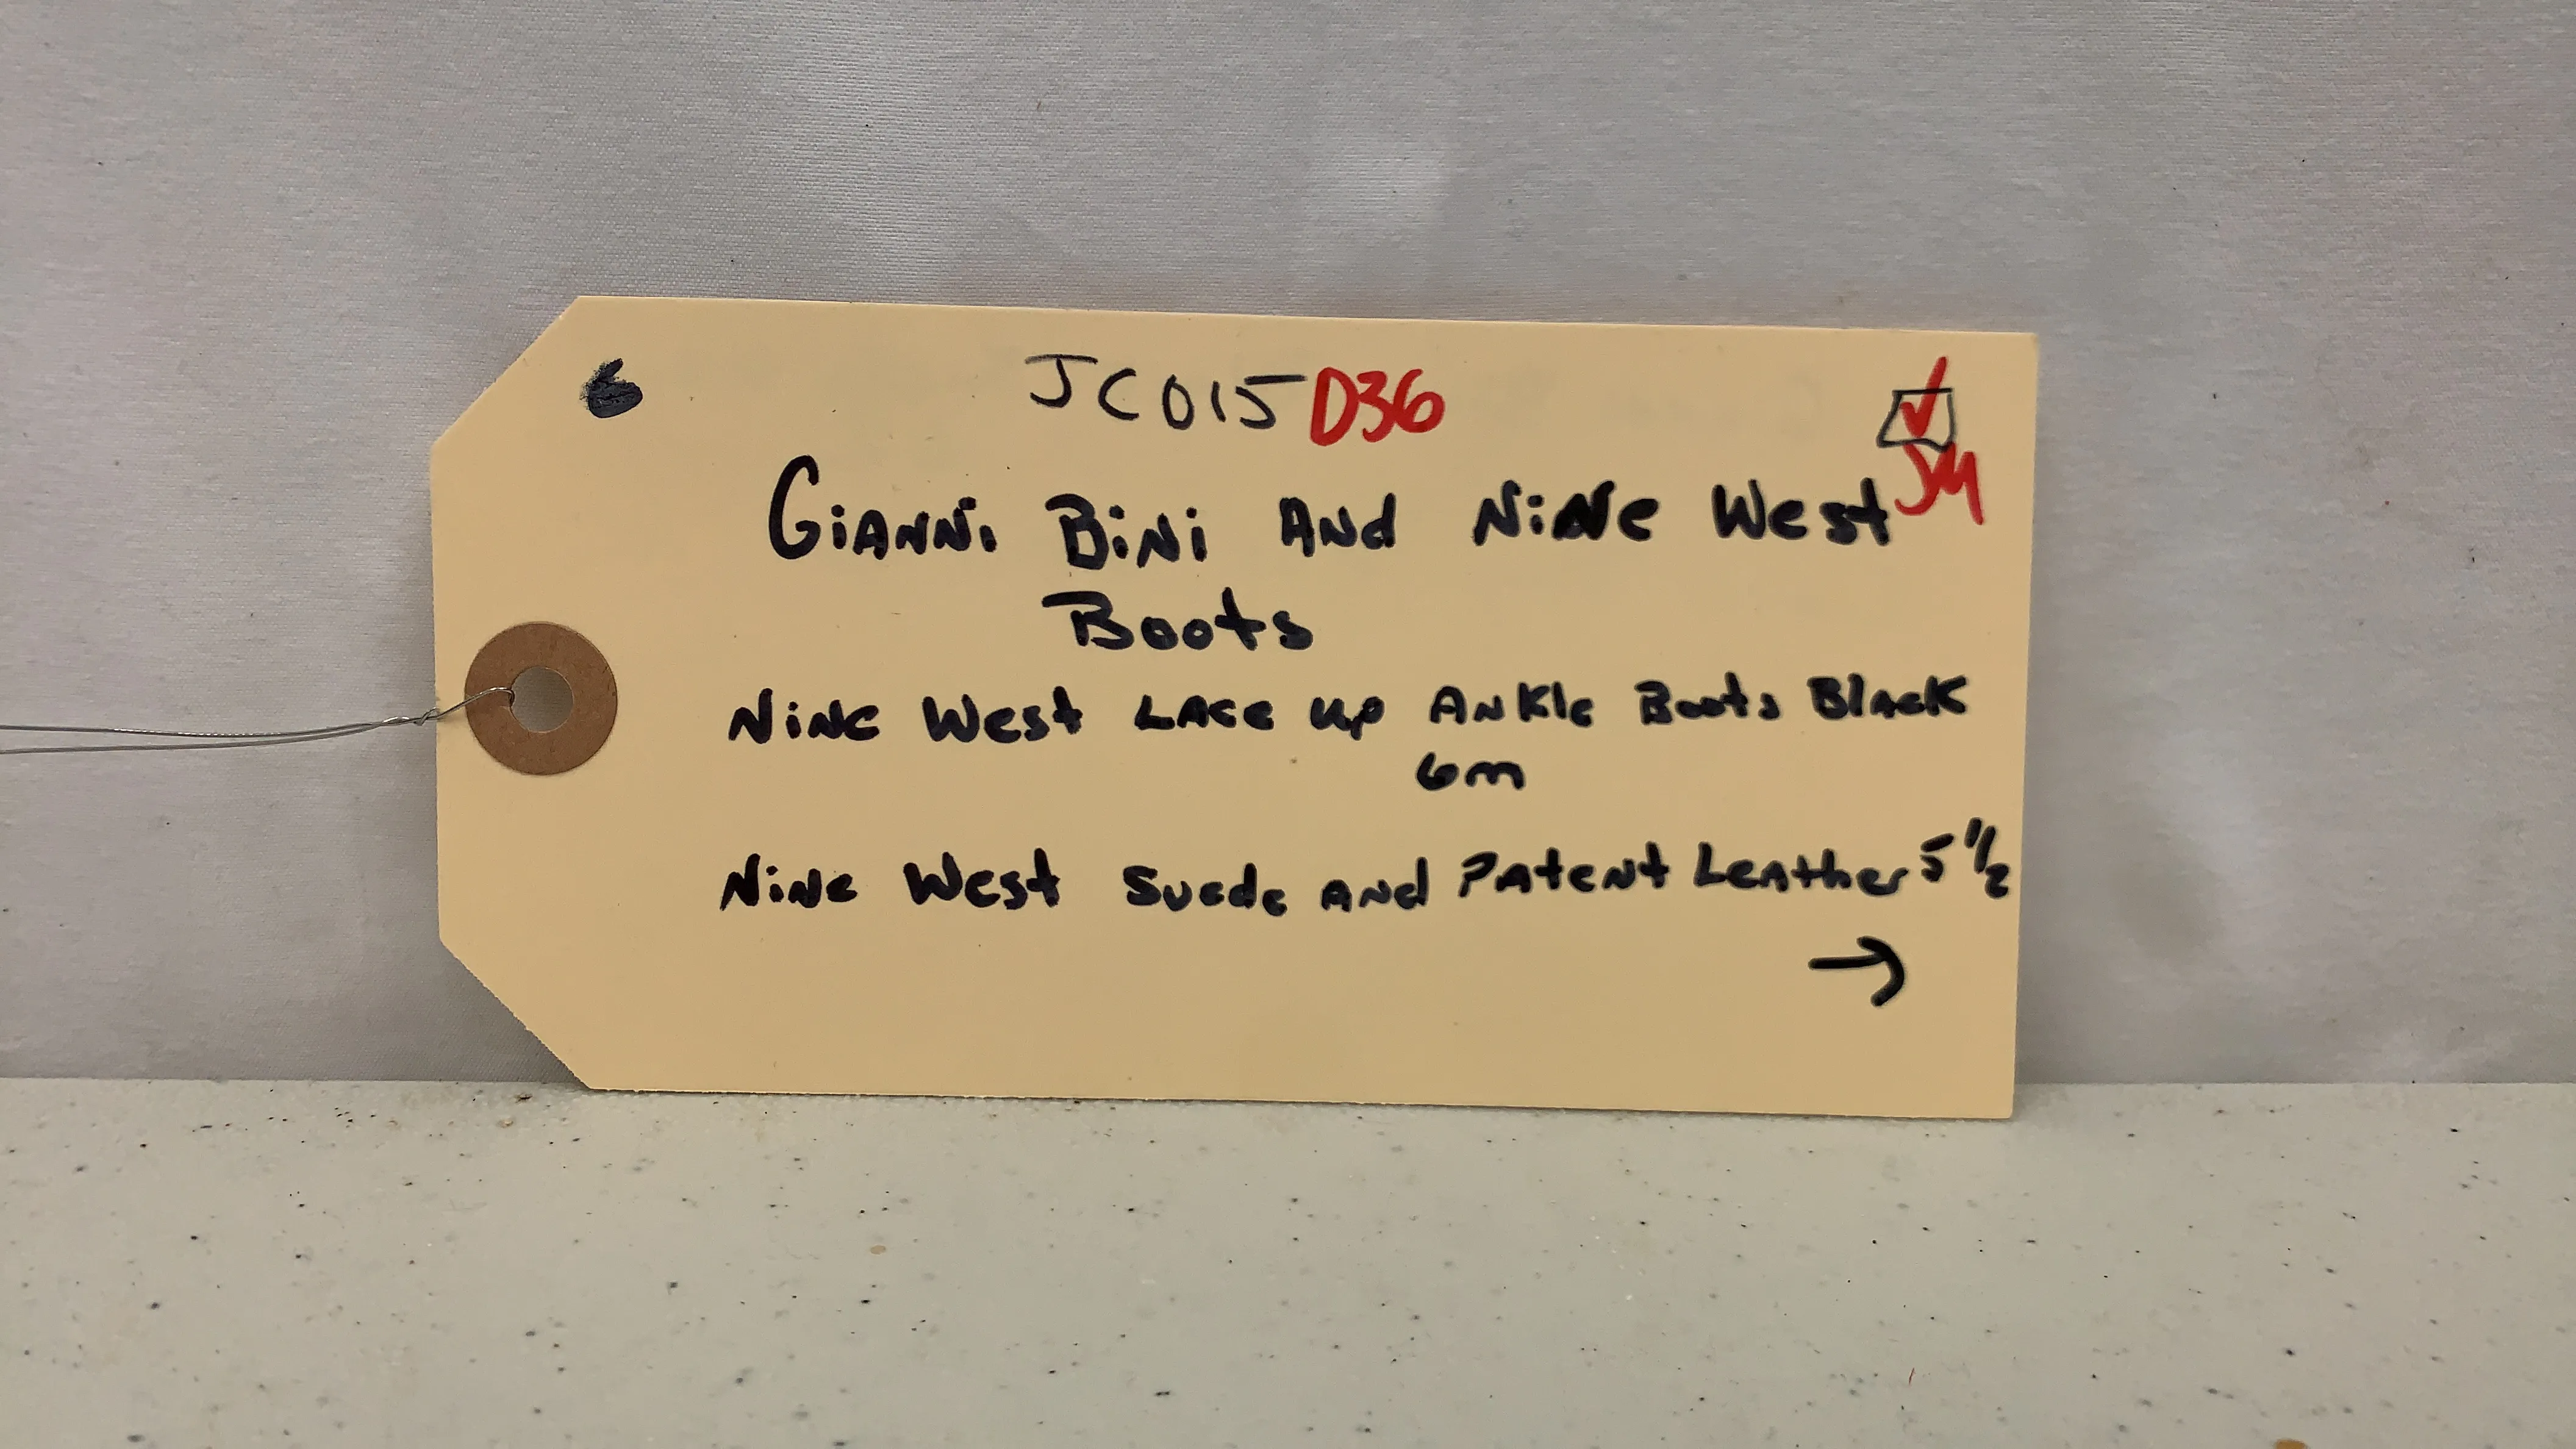 6
JC015 D36
Gianni Bini And Nine West
JM
Boots
Nine West Lace up Ankle Boots Black
6m
Nine West Suede and Patent Leather 5 1/2
→